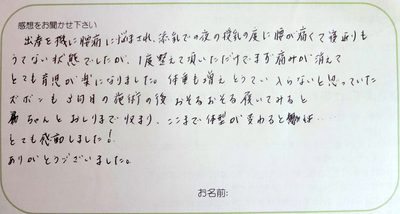 感想をお聞かせ下さい
出産を機に腰痛に悩まされ、添乳での夜の授乳の度に腰が痛くて寝返りも
うてない状態でしたが、1度整えて頂いただけでまず痛みが消えて
とても育児が楽になりました。体重も増え とうてい入らないと思っていた
ズボンも3回目の施術の後 おそるおそる履いてみると
ちゃんとおしりまで収まり、ここまで体型が変わるとは‥‥
とても感動しました!
ありがとうございました。
お名前: